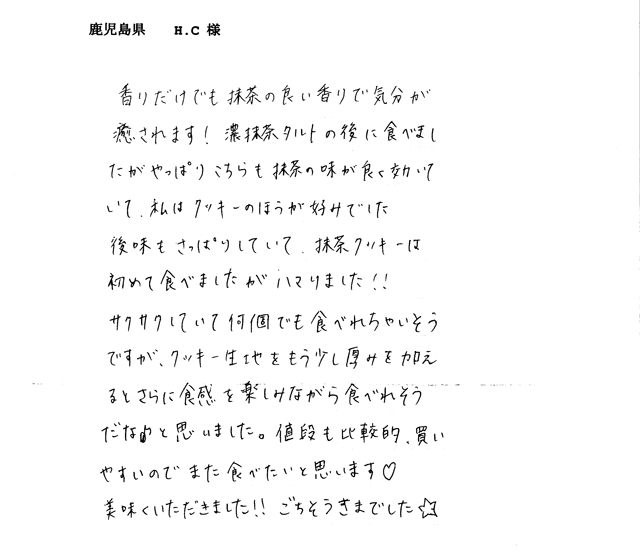 鹿児島県 H.C 様
香りだけでも抹茶の良い香りで気分が
癒されます！ 濃抹茶タルトの後に食べまし
たがやっぱりこちらも抹茶の味が良く効いて
いて、私はクッキーのほうが好みでした
後味もさっぱりしていて、抹茶クッキーは
初めて食べましたがハマりました！！
サクサクしていて何個でも食べれちゃいそう
ですが、クッキー生地をもう少し厚みを加え
るとさらに食感を楽しみながら食べれそう
だなぁと思いました。値段も比較的、買い
やすいのでまた食べたいと思います♡
美味くいただきました!! ごちそうさまでした☆